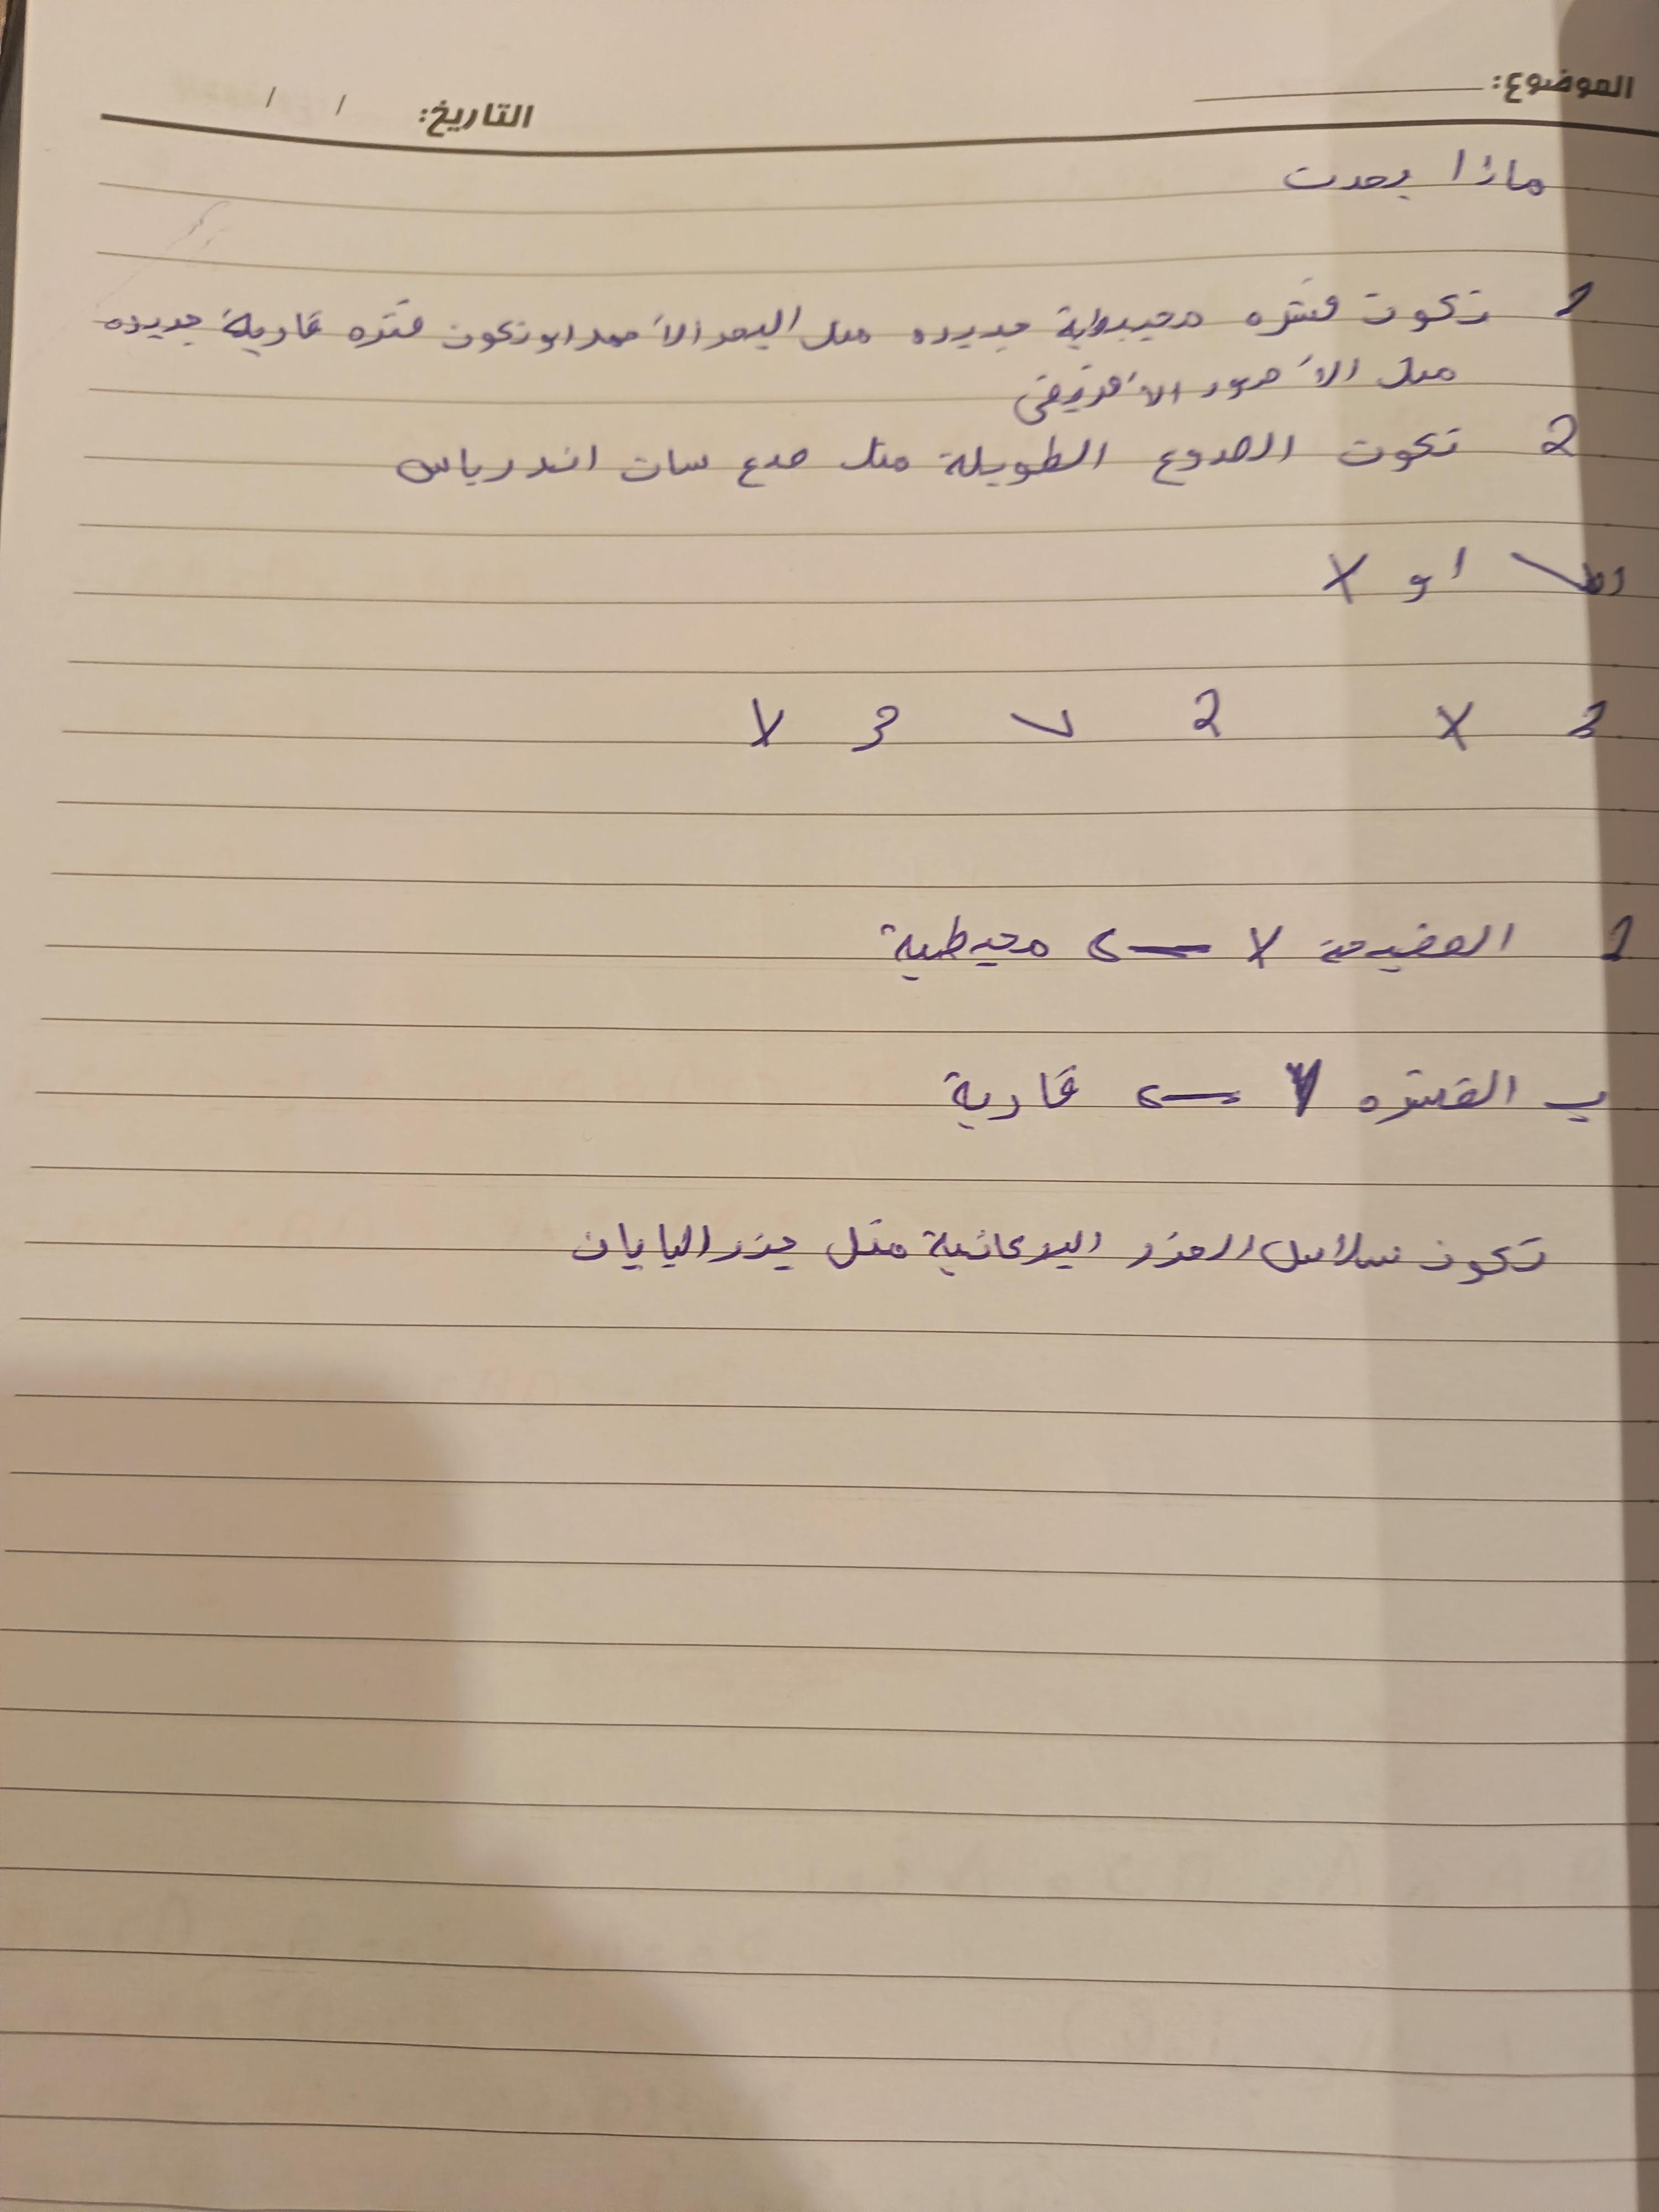 الموضوع:
التاريخ: / /
ماذا يحدث
1 تكون قشره محيطية جديده مثل البحر الأحمر او تكون قشره قارية جديده
مثل الأخدود الأفريقي
2 تكون الصدوع الطويلة مثل صدع سان اندرياس
✓ او X
1 X 2 ✓ 3 X
1 الصفيحة X ← محيطية
ب القشره Y ← قارية
تكون سلاسل الجزر البركانية مثل جزر اليابان